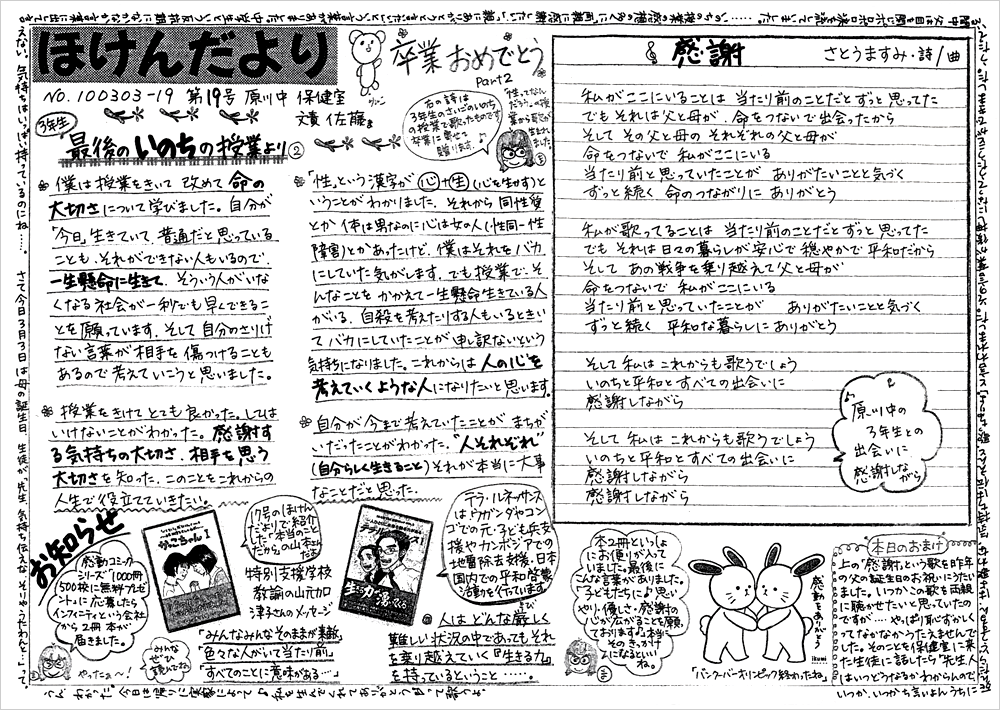 ほけんだより
NO.100303-19 第19号 原川中 保健室
文責 佐藤
卒業おめでとう
Part2
右の詩は
3年生のさいごのいのち
の授業で歌ったものです
卒業に寄せて
贈ります。
3年生
最後のいのちの授業より②
僕は授業をきいて 改めて命の
大切さについて学びました。自分が
「今日」生きていて、普通だと思っている
ことも、それができない人もいるので、
一生懸命に生きて、そういう人がいな
くなる社会が一秒でも早くできるこ
とを願っています。そして自分のさりげ
ない言葉が相手を傷つけることも
あるので考えていこうと思いました。
授業をきけてとても良かった。しては
いけないことがわかった。感謝す
る気持ちの大切さ、相手を思う
大切さを知った。このことをこれからの
人生で役立てていきたい。
「性」という漢字が 心+生 (心を生かす)と
いうことがわかりました。それから 同性愛
とか 体は男なのに心は女の人(性同一性
障害)とかあったけど、僕はそれをバカ
にしていた気がします。でも授業で、そ
んなことを かかえて一生懸命生きている人
がいる、自殺を考えたりする人もいるときい
て バカにしていたことが申し訳ないという
気持ちになりました。これからは人の心を
考えていくような人になりたいと思います。
自分が今まで考えていたことが、まちが
いだったことがわかった。"人それぞれ"
(自分らしく生きること)それが本当に大事
なことだと思った。
感謝
さとうますみ・詩/曲
私がここにいることは 当たり前のことだとずっと思ってた
でも それは父と母が 命をつないで出会ったから
そして その父と母の それぞれの父と母が
命をつないで 私がここにいる
当たり前と思っていたことが ありがたいことと気づく
ずっと続く 命のつながりに ありがとう
私が歌ってることは 当たり前のことだとずっと思ってた
でも それは日々の暮らしが安心で穏やかで 平和だから
そして あの戦争を乗り越えて父と母が
命をつないで 私がここにいる
当たり前と思っていたことが ありがたいことと気づく
ずっと続く 平和な暮らしに ありがとう
そして 私は これからも歌うでしょう
いのちと平和と すべての出会いに
感謝しながら
そして 私は これからも歌うでしょう
いのちと平和と すべての出会いに
感謝しながら
感謝しながら
原川中の
3年生との
出会いに
感謝しな
がら
お知らせ
感動コミック
シリーズ 1000冊
500校に無料プレゼ
ントに応募したら
インフィニティという会社
から 2冊 本が
届きました。
やったぁ〜!
みんな
ぜひ
読んでね
7号のほけん
だよりで紹介
した「本当のこと
だから」の山本さん
だよ
特別支援学校
教諭の山元加
津子さんのメッセージ
「みんなみんなそのままが素敵」
「色々な人がいて当たり前」
「すべてのことに意味がある…」
テラ・ルネッサンス
はウガンダやコン
ゴでの元・子ども兵支
援やカンボジアでの
地雷除去支援、日本
国内での平和啓発
活動を行っています。
人はどんな厳しく
難しい状況の中であってもそれ
を乗り越えていく『生きる力』
を持っているということ……。
本2冊といっしょ
にお便りが入って
いました。最後に
こんな言葉がありました。
「子どもたちに♪思い
やり・優しさ・感謝の
心が広がることを願
ております♪」本当
そのきっかけ
になるといい
ね。
感動をありがとう
ikumi
「バンクーバーオリンピック終わったね」
本日のおまけ
上の「感謝」という歌を昨年
の父の誕生日のお祝いにうたい
ました。いつかこの歌を両親
に聴かせたいと思っていたの
ですが…やっぱり恥ずかしく
ってなかなかうたえませんでし
た。そのことを保健室に来
た生徒に話したら「先生人
はいつどうなるかわからんので、
いつか、いつかち言いよんうちに
さて今日3月3日は母の誕生日。